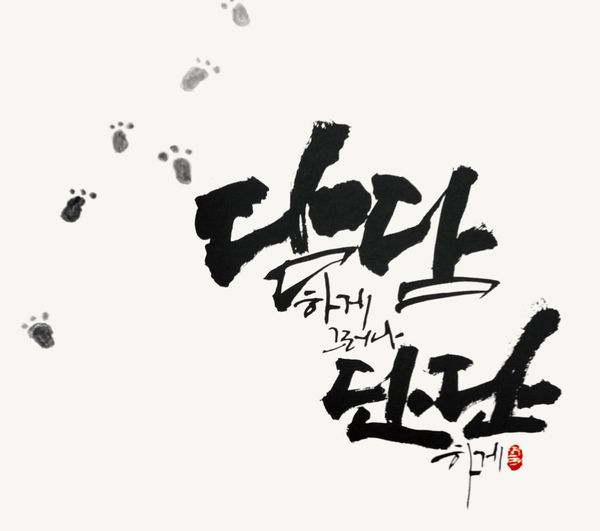 담담
하게
그러나
단단
하게